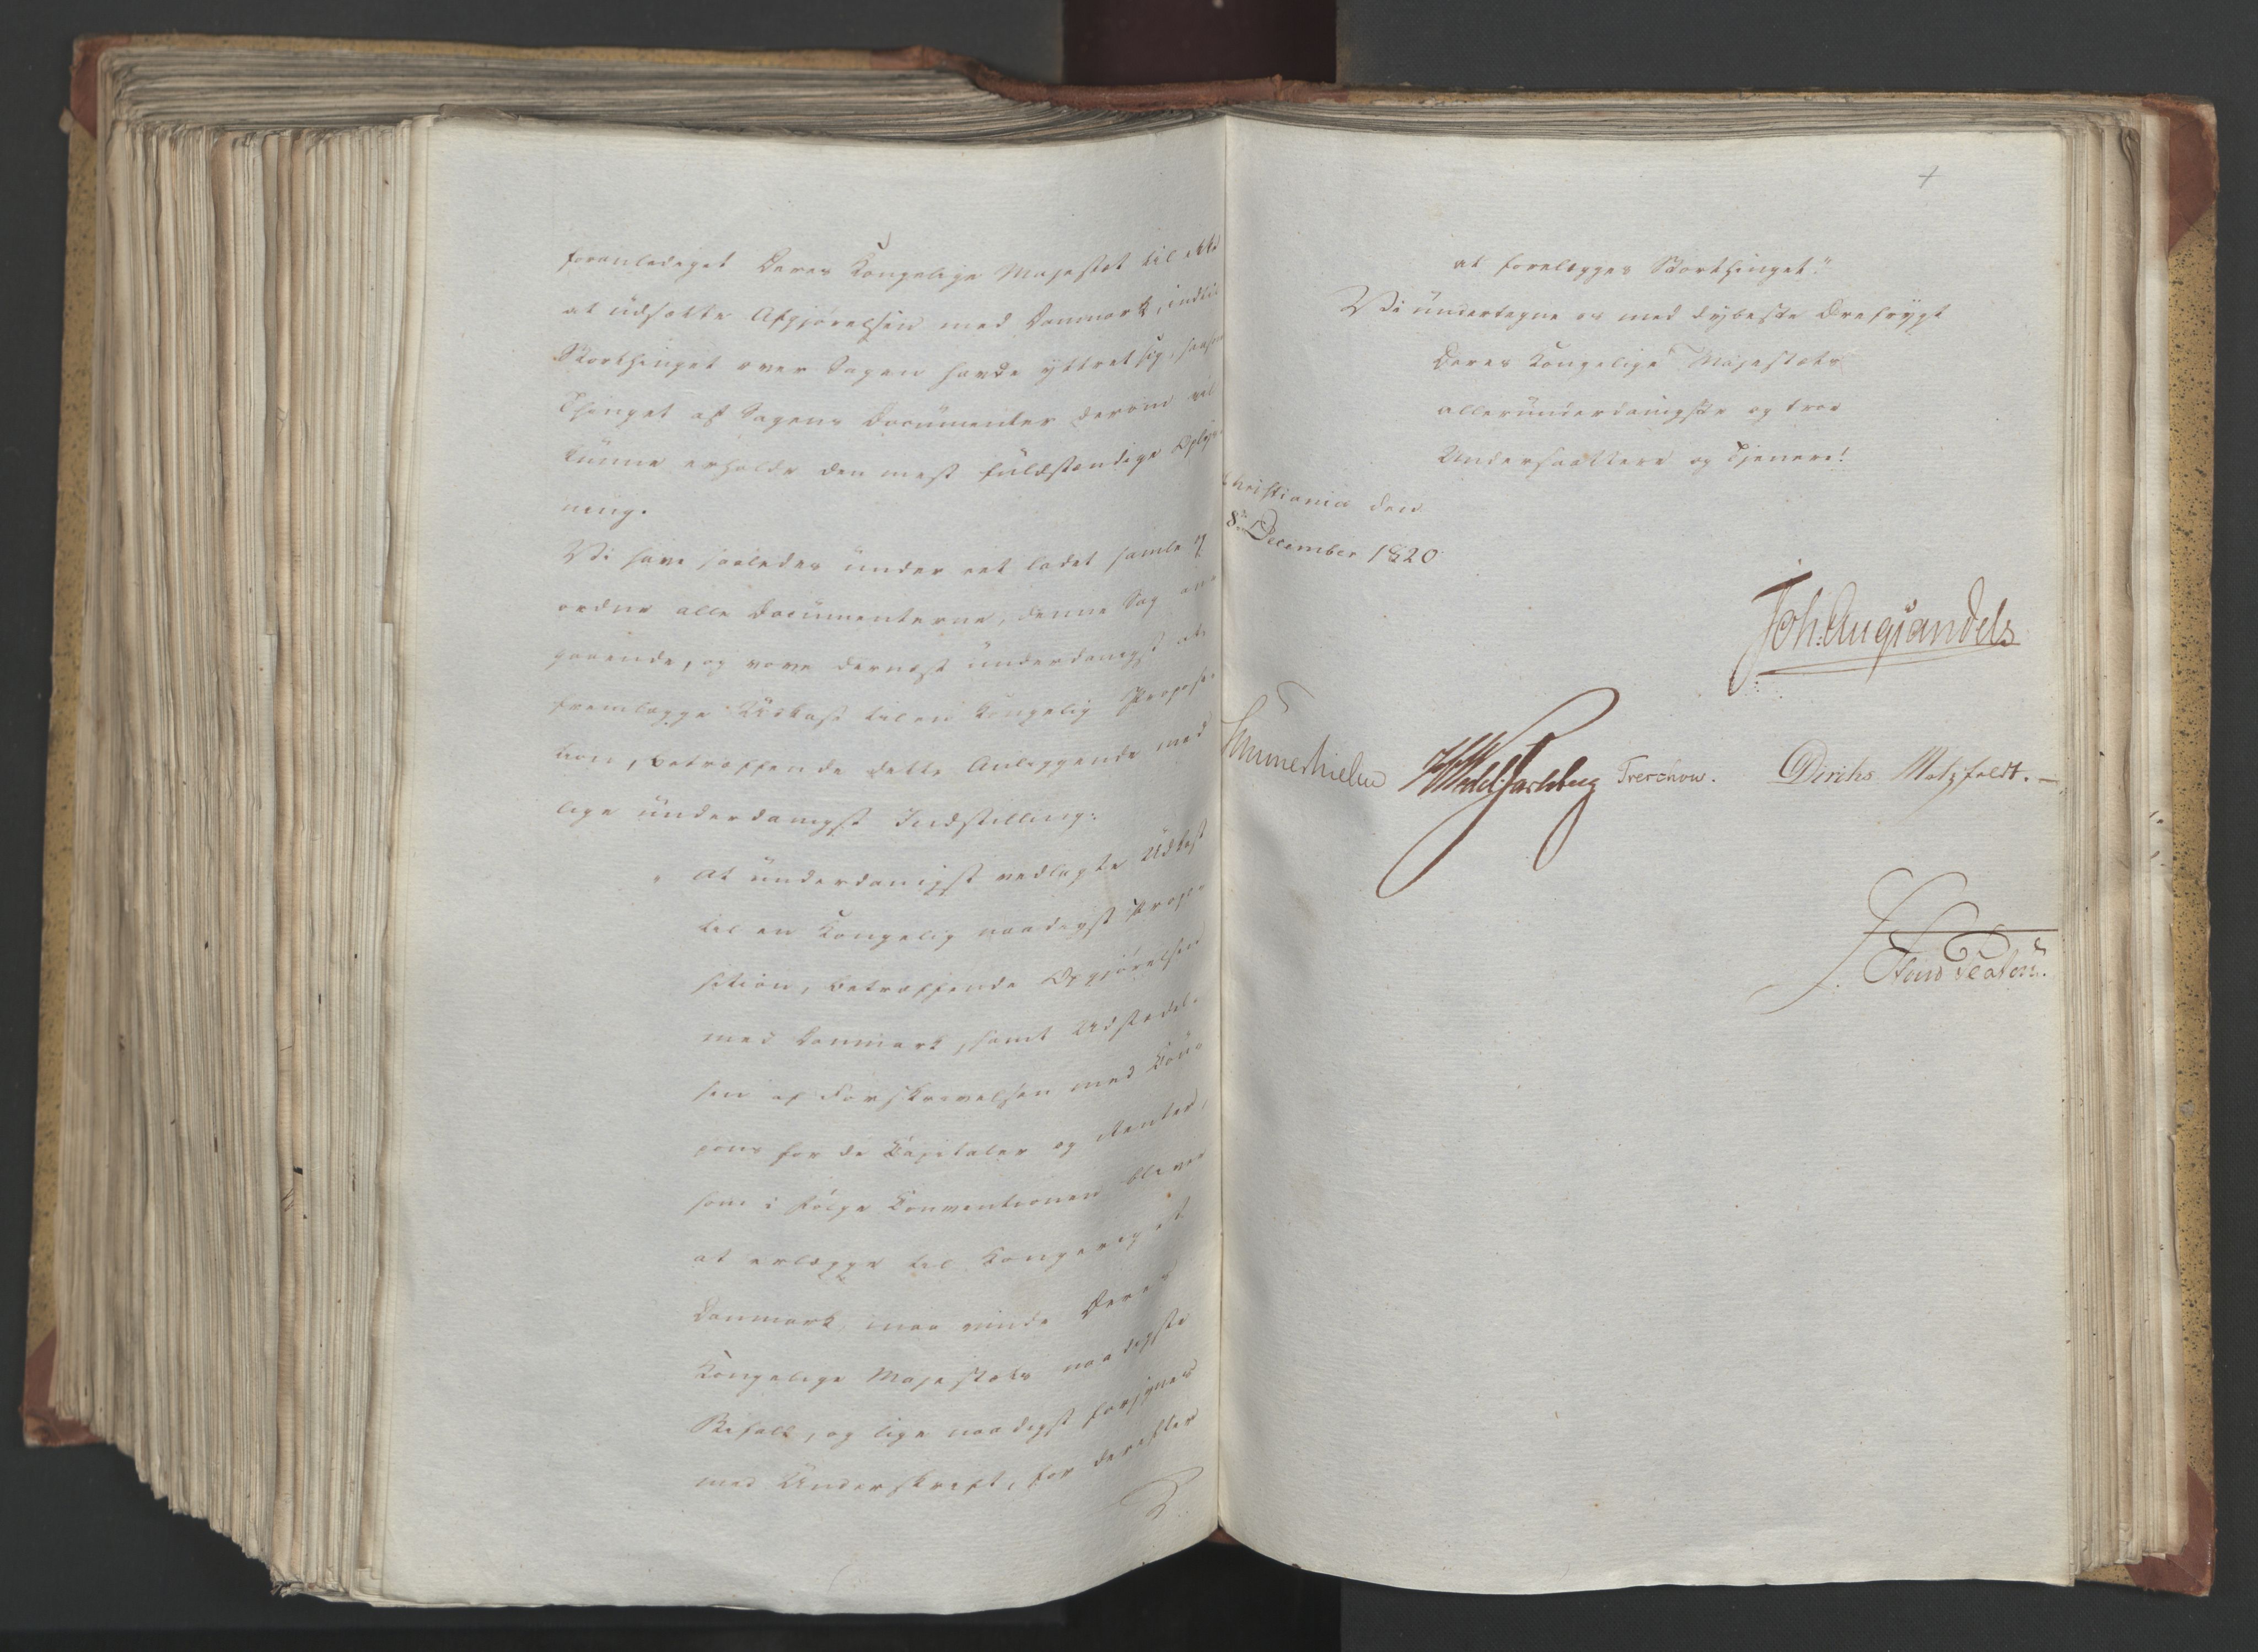 foranlediget Deres Kongelige Majestæt til ikke
at udsætte Afgjørelsen med Danmark, indtil
Storthinget over Sagen havde yttret sig, saasom
Thinget af Sagens Documenter derom vil
kunne erholde den mest fuldstændige Oplys-
ning.
Vi have saaledes under eet ladet samle og
ordne alle Documenterne, denne Sag an-
gaaende, og vove dernæst underdanigst at
fremlægge Udkast til en Kongelig Proposi-
tion, betræffende dette Anliggende med
lige underdanigst Indstilling:
" At underdanigst vedlagte Udkast
til en Kongelig naadigst Propo-
sition, betræffende Opgjørelsen
med Danmark, samt Udstedel-
sen af Forskrivelsen med Cou-
pons for de Capitaler og Renter,
som i følge Conventionen bliver
at erlægge til Kongeriget
Danmark, maa vinde Deres
Kongelige Majestæts naadigste
Bifald, og lige naadigst forsynes
med Underskrift, for derefter
at forelægges Storthinget."
Vi undertegne os med dybeste Ærefrygt
Deres Kongelige Majestæts
allerunderdanigste og troe
Undersaattere og Tjenere!
Christiania den
8de December 1820
Joh: Aug: Sandels
Sommerhielm HWedel Jarlsberg Treschow. Diriks Motzfeldt. —